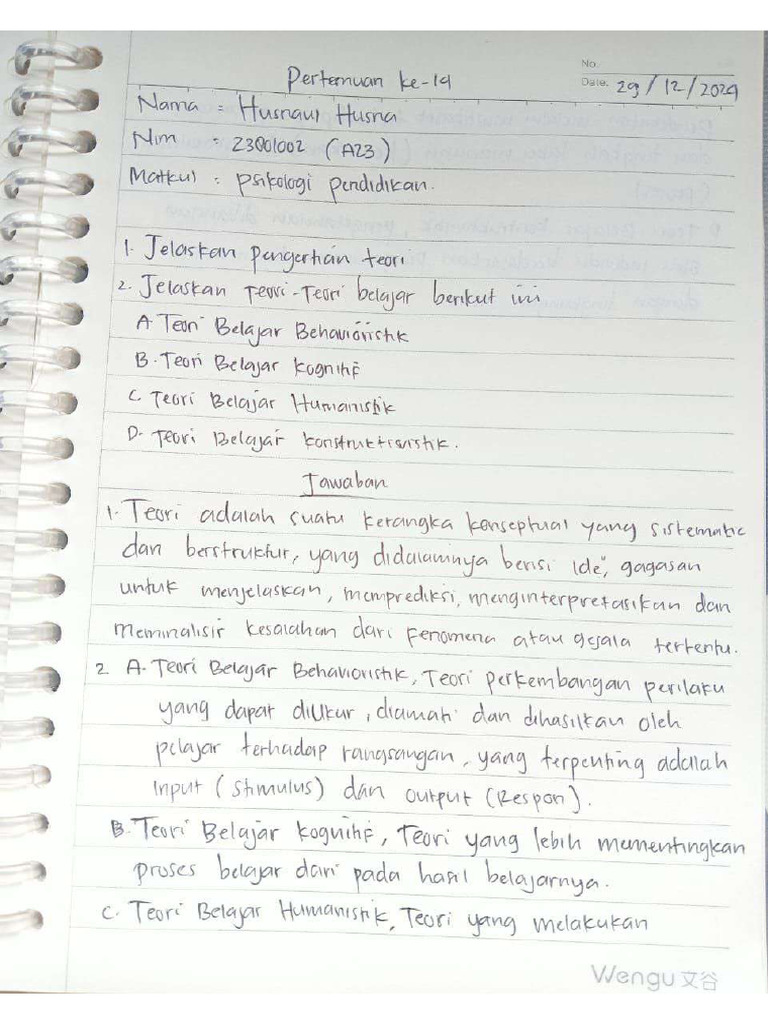 Pertemuan ke-14
No.
Date. 29/12/2024
Nama : Husnaul Husna
Nim : 23001002 (A23)
Matkul : psikologi pendidikan.
1. Jelaskan pengertian teori
2. Jelaskan Teori-Teori belajar berikut ini
A. Teori Belajar Behavioristik
B. Teori Belajar kognitif
C. Teori Belajar Humanistik
D. Teori Belajar konstruktivistik.
Jawaban
1. Teori adalah suatu kerangka konseptual yang sistematic
dan berstruktur, yang didalamnya berisi ide", gagasan
untuk menjelaskan, memprediksi, menginterpretasikan dan
meminalisir kesalahan dari fenomena atau gejala tertentu.
2. A. Teori Belajar Behavioristik, Teori perkembangan perilaku
yang dapat diukur, diamati dan dihasilkan oleh
pelajar terhadap rangsangan, yang terpenting adalah
input (stimulus) dan output (Respon).
B. Teori Belajar kognitif, Teori yang lebih mementingkan
proses belajar dari pada hasil belajarnya.
C. Teori Belajar Humanistik, Teori yang melakukan
Wengu 文谷